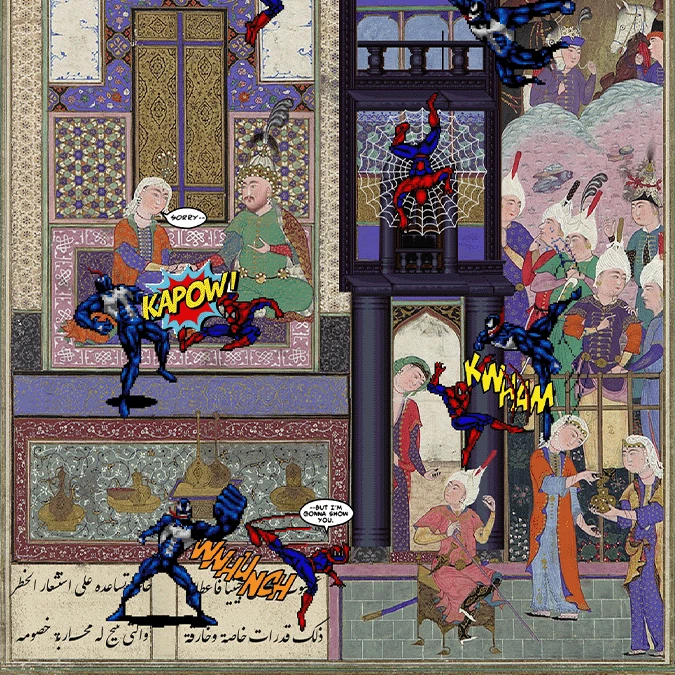 SORRY--
KAPOW!
KWHAM
--BUT I'M
GONNA SHOW
YOU.
تساعده على استشعار الخطر
ذلك قدرات خاصة وخارقة والتي تتيح له محاربة خصومه